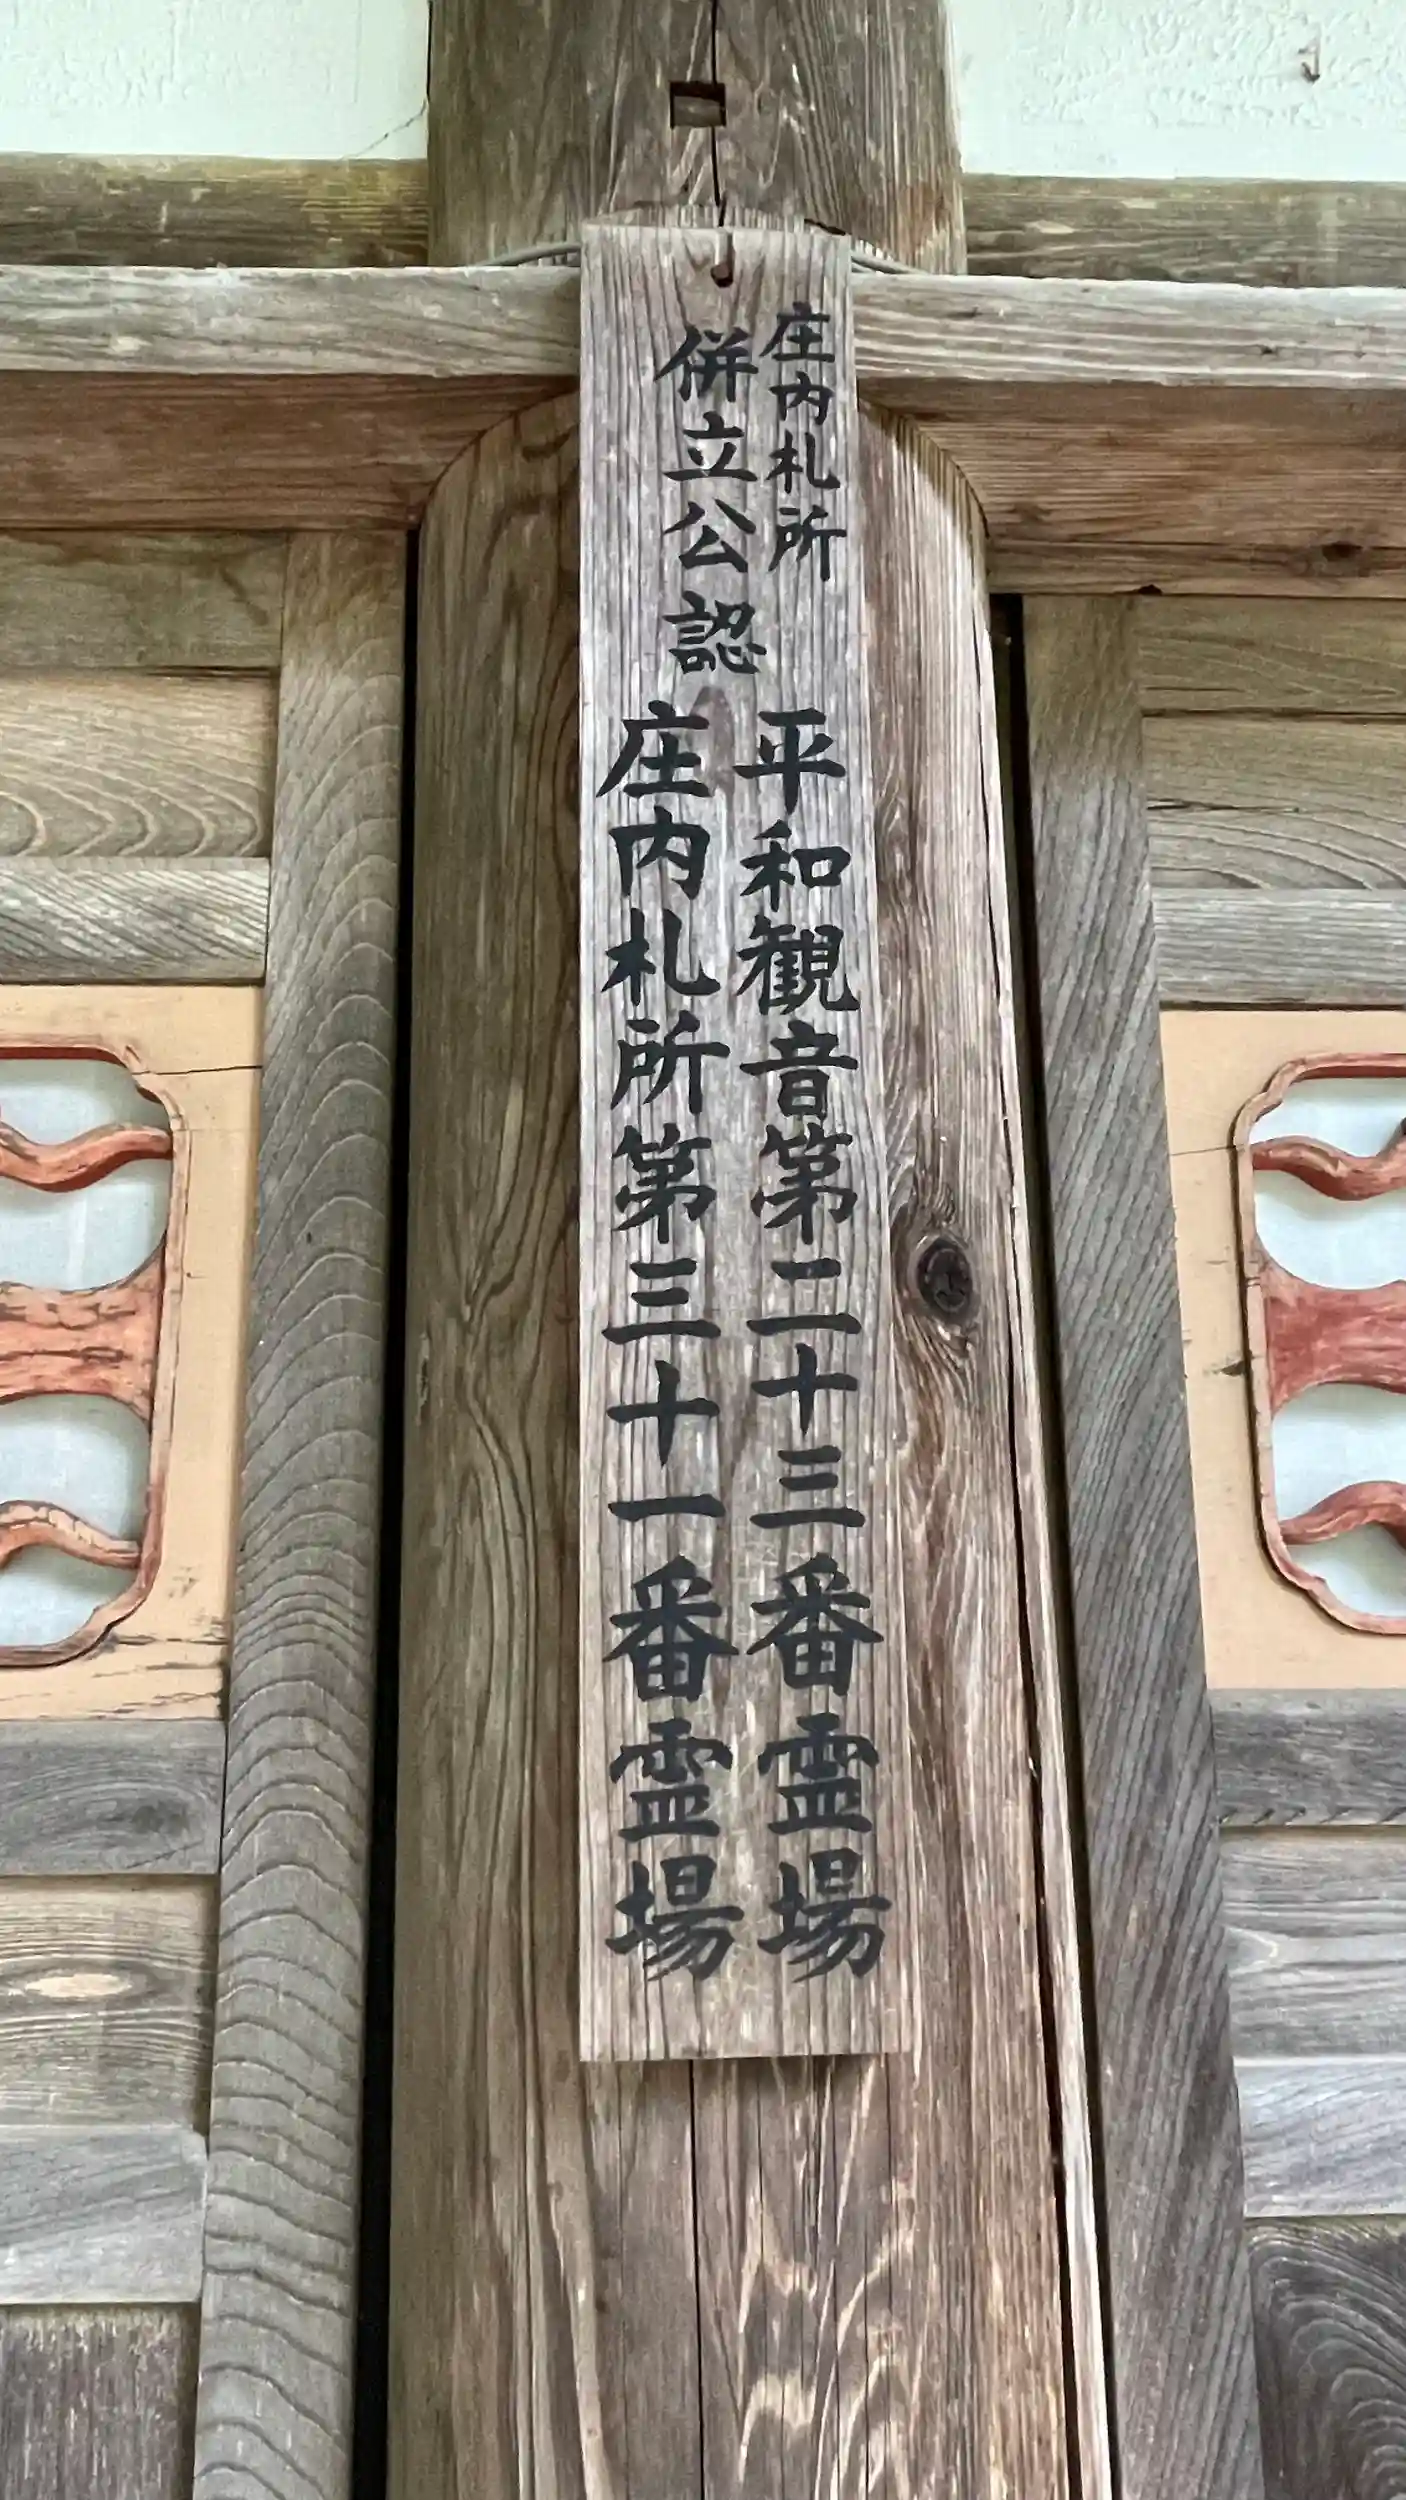 庄内札所
併立公認
平和観音第二十三番霊場
庄内札所第三十一番霊場